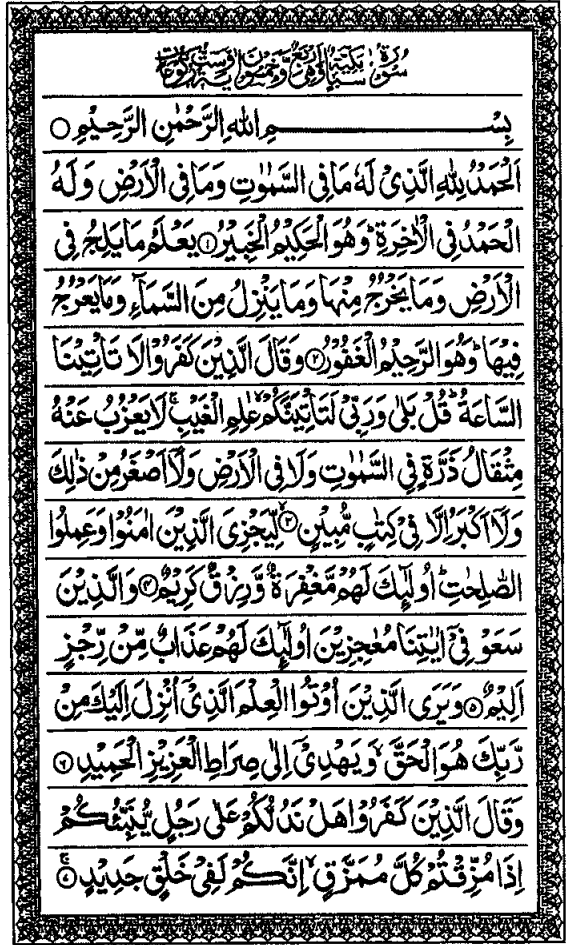 سُوْرَةُ سَبَاٍ مَكِّيَّةٌ وَّهِيَ اَرْبَعٌ وَّخَمْسُوْنَ اٰيَةً وَّسِتُّ رُكُوْعَاتٍ
بِسْمِ اللهِ الرَّحْمٰنِ الرَّحِيْمِ ○
اَلْحَمْدُ لِلّٰهِ الَّذِيْ لَهٗ مَا فِي السَّمٰوٰتِ وَمَا فِي الْاَرْضِ وَلَهُ
الْحَمْدُ فِي الْاٰخِرَةِ ؕ وَهُوَ الْحَكِيْمُ الْخَبِيْرُ ۝۱ يَعْلَمُ مَا يَلِجُ فِي
الْاَرْضِ وَمَا يَخْرُجُ مِنْهَا وَمَا يَنْزِلُ مِنَ السَّمَآءِ وَمَا يَعْرُجُ
فِيْهَا ؕ وَهُوَ الرَّحِيْمُ الْغَفُوْرُ ۝۲ وَقَالَ الَّذِيْنَ كَفَرُوْا لَا تَاْتِيْنَا
السَّاعَةُ ؕ قُلْ بَلٰى وَرَبِّيْ لَتَاْتِيَنَّكُمْ ۙ عٰلِمِ الْغَيْبِ ۚ لَا يَعْزُبُ عَنْهُ
مِثْقَالُ ذَرَّةٍ فِي السَّمٰوٰتِ وَلَا فِي الْاَرْضِ وَلَاۤ اَصْغَرُ مِنْ ذٰلِكَ
وَلَاۤ اَكْبَرُ اِلَّا فِيْ كِتٰبٍ مُّبِيْنٍ ۝۳ۙ لِّيَجْزِيَ الَّذِيْنَ اٰمَنُوْا وَعَمِلُوا
الصّٰلِحٰتِ ؕ اُولٰٓئِكَ لَهُمْ مَّغْفِرَةٌ وَّرِزْقٌ كَرِيْمٌ ۝۴ وَالَّذِيْنَ
سَعَوْ فِيْۤ اٰيٰتِنَا مُعٰجِزِيْنَ اُولٰٓئِكَ لَهُمْ عَذَابٌ مِّنْ رِّجْزٍ
اَلِيْمٌ ۝۵ وَيَرَى الَّذِيْنَ اُوْتُوا الْعِلْمَ الَّذِيْۤ اُنْزِلَ اِلَيْكَ مِنْ
رَّبِّكَ هُوَ الْحَقَّ ۙ وَيَهْدِيْۤ اِلٰى صِرَاطِ الْعَزِيْزِ الْحَمِيْدِ ۝۶
وَقَالَ الَّذِيْنَ كَفَرُوْا هَلْ نَدُلُّكُمْ عَلٰى رَجُلٍ يُّنَبِّئُكُمْ
اِذَا مُزِّقْتُمْ كُلَّ مُمَزَّقٍ ۙ اِنَّكُمْ لَفِيْ خَلْقٍ جَدِيْدٍ ۝۷ۚ